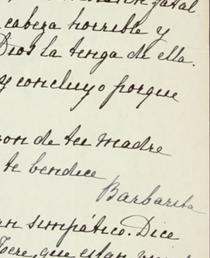 cabeza horrible y
Dios la tenga de ella.
y concluyo porque
de tu madre
te bendice
Barbarita
simpático. Dice
que estan